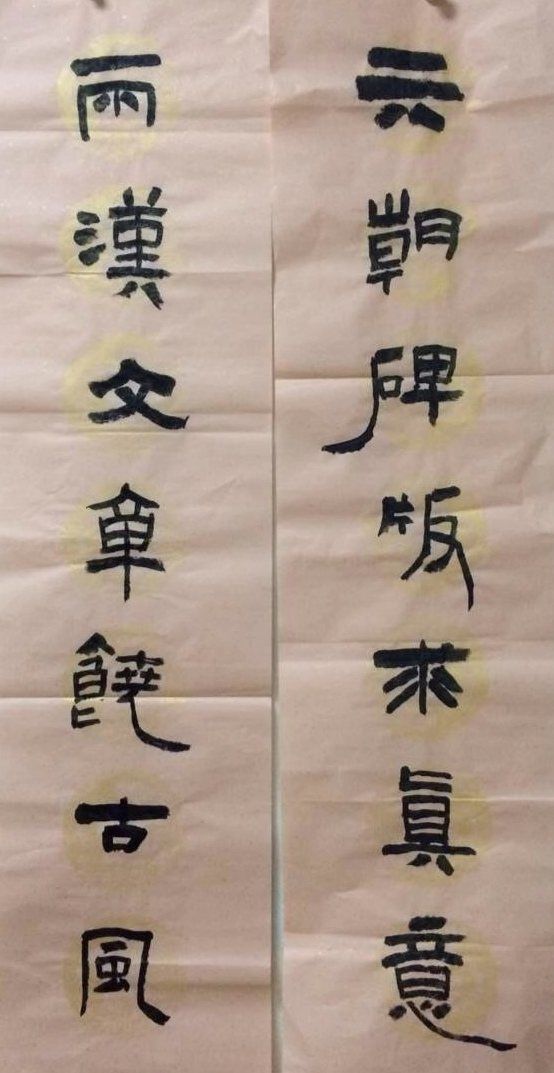 六朝碑版求真意
兩漢文章饒古風